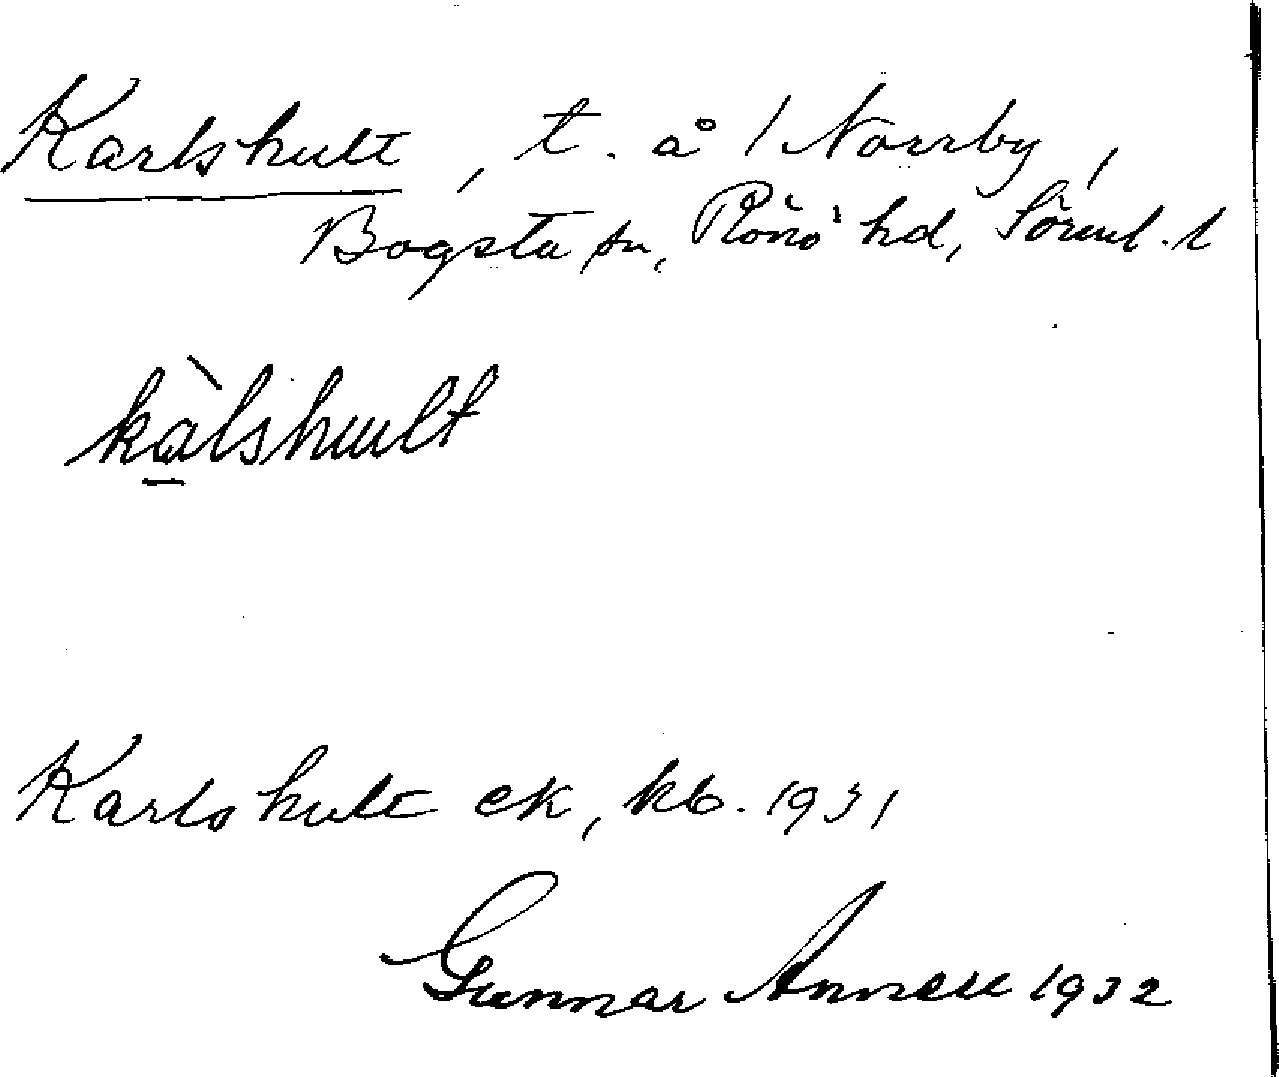 Karlshult, t. å 1 Norrby,
Bogsta sn, Rönö hd, Sörml. l
kàlshult
Karlshult ek, kb. 1931
Gunnar Annell 1932